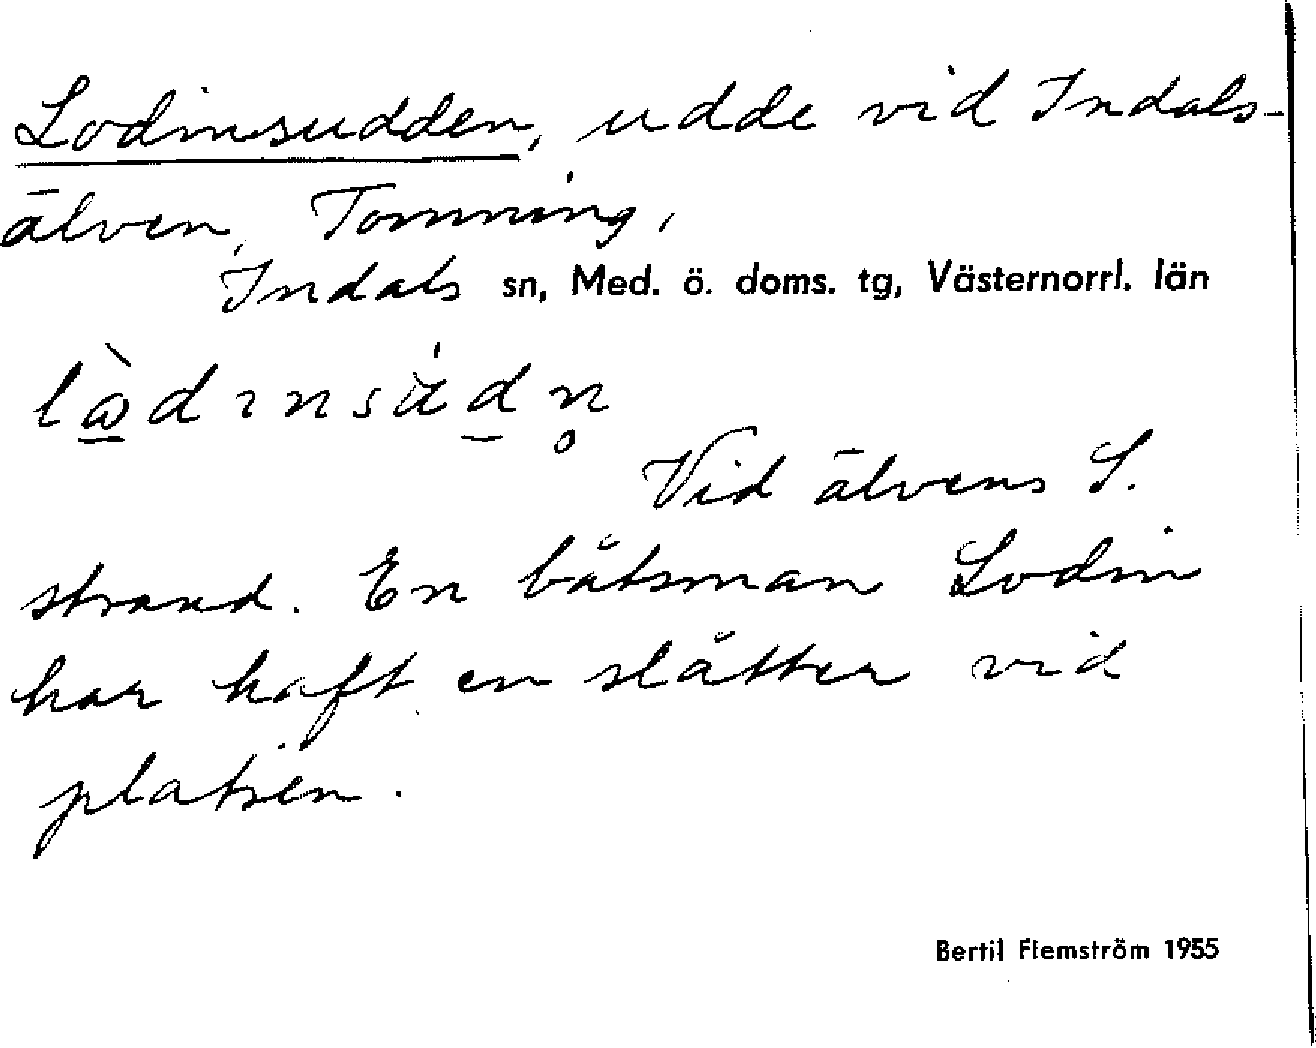 Lodinsudden, udde vid Indals-
älven, Tomming,
Indals sn, Med. ö. doms. tg, Västernorrl. län
Vid älvens S.
strand. En båtsman Lodin
har haft en slåtter vid
platsen.
Bertil Flemström 1955